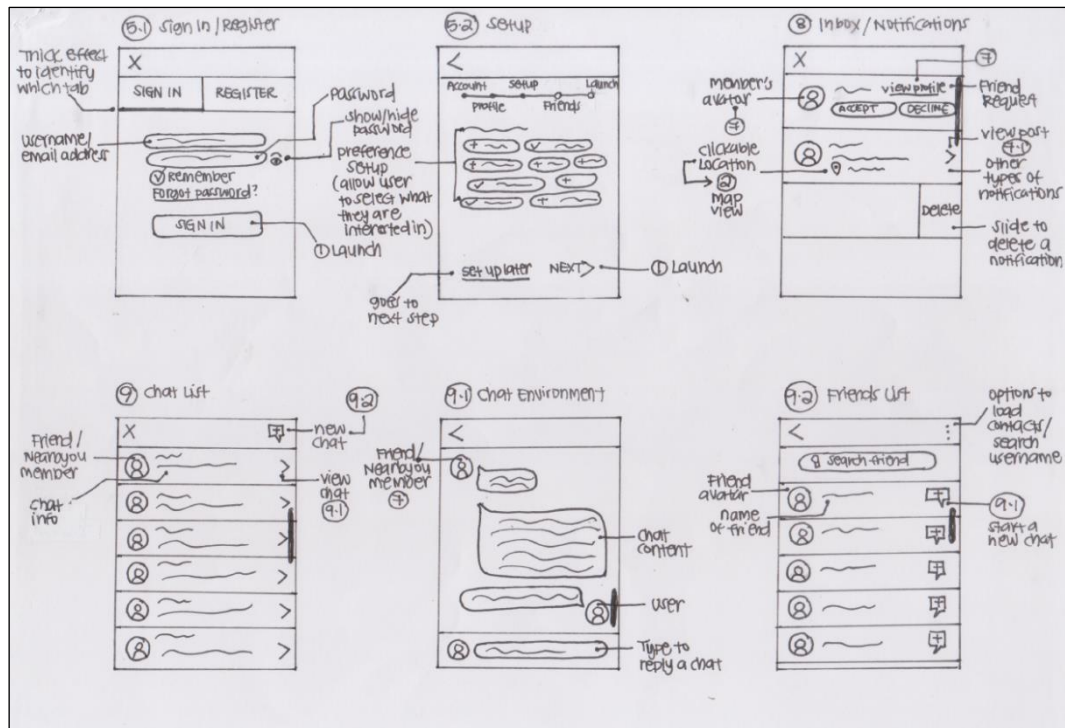 5.1 Sign In/Register
Thick effect
to identify
which tab
X
SIGN IN
REGISTER
username/
email address
password
show/hide
password
Remember
Forgot password?
SIGN IN
1 Launch
5.2 Setup
<
Account
Setup
Launch
Profile
Friends
preference
setup
(allow user
to select what
they are
interested in)
set up later
NEXT
1 Launch
goes to
next step
8 Inbox/Notifications
X
7
member's
avatar
7
view profile
ACCEPT
DECLINE
Friend
Request
clickable
location
2
map
view
view post
other
types of
notifications
DELETE
slide to
delete a
notification
9 Chat List
X
9.2
new
chat
Friend/
Nearbyou
member
chat
info
view
chat
9.1
9.1 Chat Environment
<
Friend/
Nearbyou
member
7
chat
content
user
Type to
reply a chat
9.2 Friends List
<
options to
load
contacts/
search
username
search friend
Friend
avatar
name
of friend
9.1
start a
new chat